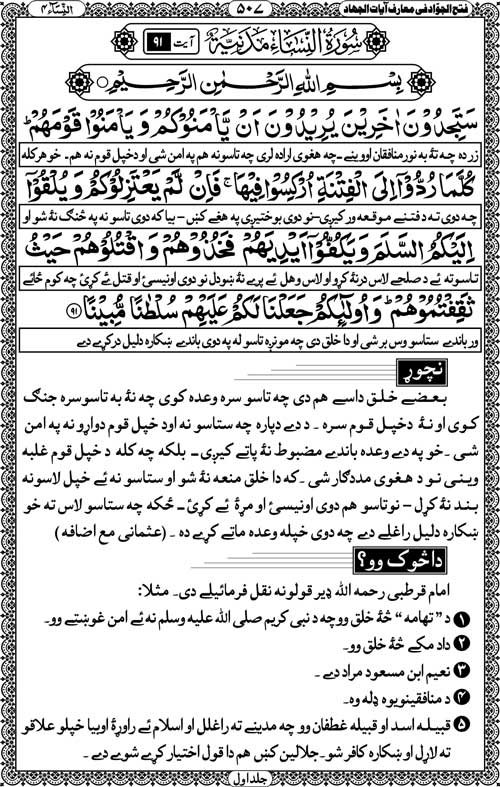 فتح الجوّاد فی معارف آیات الجهاد
۵۰۷
النّسآء ۴
سُوْرَةُ النِّسَاءِ مَدَنِيَّةٌ
آیت ۹۱
بِسْمِ اللهِ الرَّحْمٰنِ الرَّحِيْمِ
سَتَجِدُوْنَ اٰخَرِيْنَ يُرِيْدُوْنَ اَنْ يَّاْمَنُوْكُمْ وَ يَاْمَنُوْا قَوْمَهُمْ ؕ
زر ده چه تۀ به نور منافقان اووینے۔ چه هغوی اراده لری چه تاسو نه هم په امن شی او دخپل قوم نه هم۔ خو هر کله
كُلَّمَا رُدُّوْۤا اِلَى الْفِتْنَةِ اُرْكِسُوْا فِيْهَا ۚ فَاِنْ لَّمْ يَعْتَزِلُوْكُمْ وَ يُلْقُوْۤا
چه دوی ته د فتنے موقعه ورکیږی۔ نو دوی بوختیږی په هغے کښ۔ بیا که دوی تاسو نه په څنګ نۀ شو او
اِلَيْكُمُ السَّلَمَ وَ يَكُفُّوْۤا اَيْدِيَهُمْ فَخُذُوْهُمْ وَ اقْتُلُوْهُمْ حَيْثُ
تاسو ته ئے د صلحے لاس درنۀ کړو او لاس وهل ئے پرے نۀ ښودل نو دوی اونیسئ او قتل ئے کړئ چه کوم ځائے
ثَقِفْتُمُوْهُمْ ؕ وَ اُولٰٓئِكُمْ جَعَلْنَا لَكُمْ عَلَيْهِمْ سُلْطٰنًا مُّبِيْنًا ﴿۹۱﴾
ور باندے ستاسو وس بر شی او دا خلق دی چه مونږه تاسو له په دوی باندے ښکاره دلیل درکړے دے
نچوړ
بعضے خلق داسے هم دی چه تاسو سره وعده کوی چه نۀ به تاسو سره جنګ
کوی او نۀ دخپل قوم سره۔ د دے دپاره چه ستاسو نه اود خپل قوم دواړو نه په امن
شی۔ خو په دے وعده باندے مضبوط نۀ پاتے کیږی۔ بلکه چه کله د خپل قوم غلبه
وینی نو د هغوی مددګار شی۔ که دا خلق منعه نۀ شو او ستاسو نه ئے خپل لاسونه
بند نۀ کړل – نو تاسو هم دوی اونیسئ او مړۀ ئے کړئ۔ ځکه چه ستاسو لاس ته خو
ښکاره دلیل راغلے دے چه دوی خپله وعده ماتے کړے ده۔ (عثمانی مع اضافه)
دا څوک وو؟
امام قرطبی رحمه الله ډیر قولونه نقل فرمائیلے دی۔ مثلا:
۱ د ”تهامه“ څۀ خلق وو چه د نبی کریم صلی الله علیه وسلم نه ئے امن غوښتے وو۔
۲ داد مکے څۀ خلق وو۔
۳ نعیم ابن مسعود مراد دے۔
۴ د منافقینو یوه ډله وه۔
۵ قبیله اسد او قبیله غطفان وو چه مدینے ته راغلل او اسلام ئے راوړۀ او بیا خپلو علاقو
ته لاړل او ښکاره کافر شو۔ جلالین کښ هم دا قول اختیار کړے شوے دے۔
جلد اول